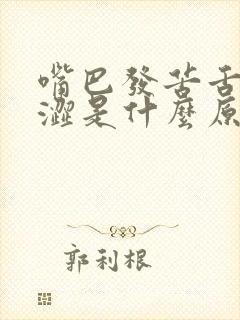 嘴巴發苦舌
澀是什麼原
郭利根